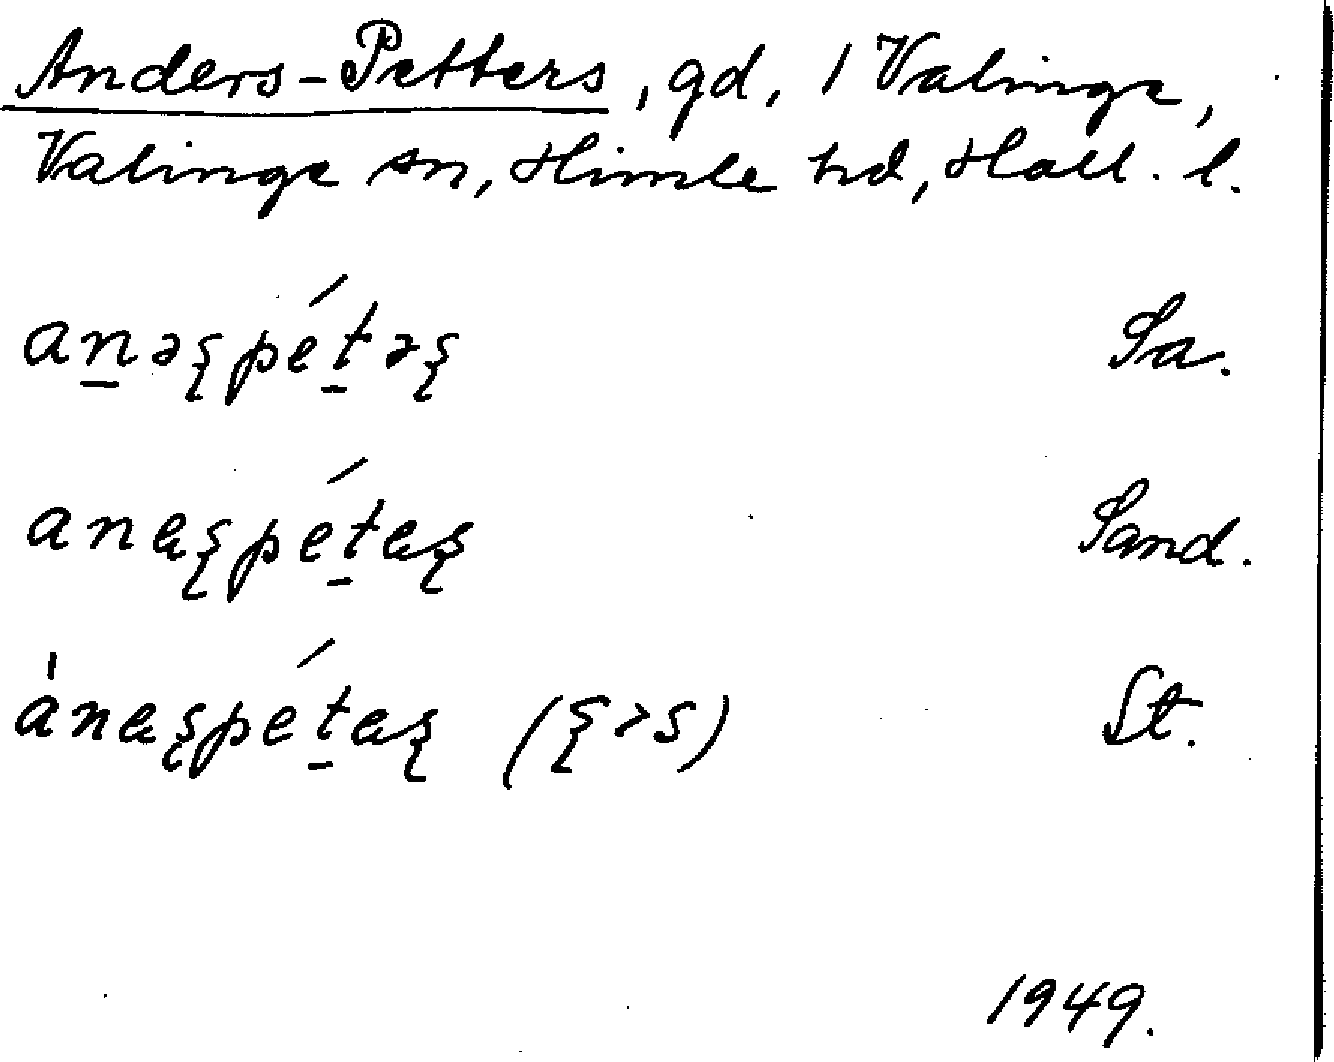 Anders-Petters, gd, 1 Valinge,
Valinge sn, Himle hd, Hall. l.
an̠əʂpét̠əʂ Sa.
anɐʂpét̠ɐʂ Sand.
ȧnɐʂpét̠ɐʂ (ʂ>s) St.
1949.